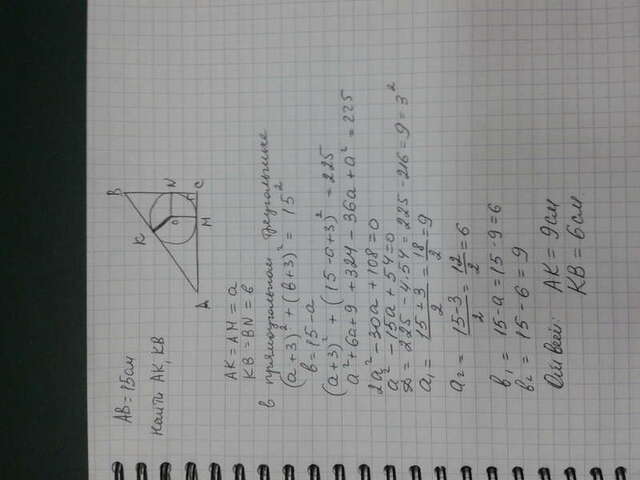 AB = 15см
Найти AK, KB
B
K
N
O
C
A
M
AK = AM = a
KB = BN = в
в прямоугольном треугольнике
(a+3)² + (в+3)² = 15²
в = 15 - a
(a+3)² + (15 - a+3)² = 225
a² + 6a + 9 + 324 - 36a + a² = 225
2a² - 30a + 108 = 0
a² - 15a + 54 = 0
D = 225 - 4·54 = 225 - 216 = 9 = 3²
a₁ = (15 + 3)/2 = 18/2 = 9
a₂ = (15 - 3)/2 = 12/2 = 6
в₁ = 15 - a = 15 - 9 = 6
в₂ = 15 - 6 = 9
Ответ: AK = 9см
KB = 6см